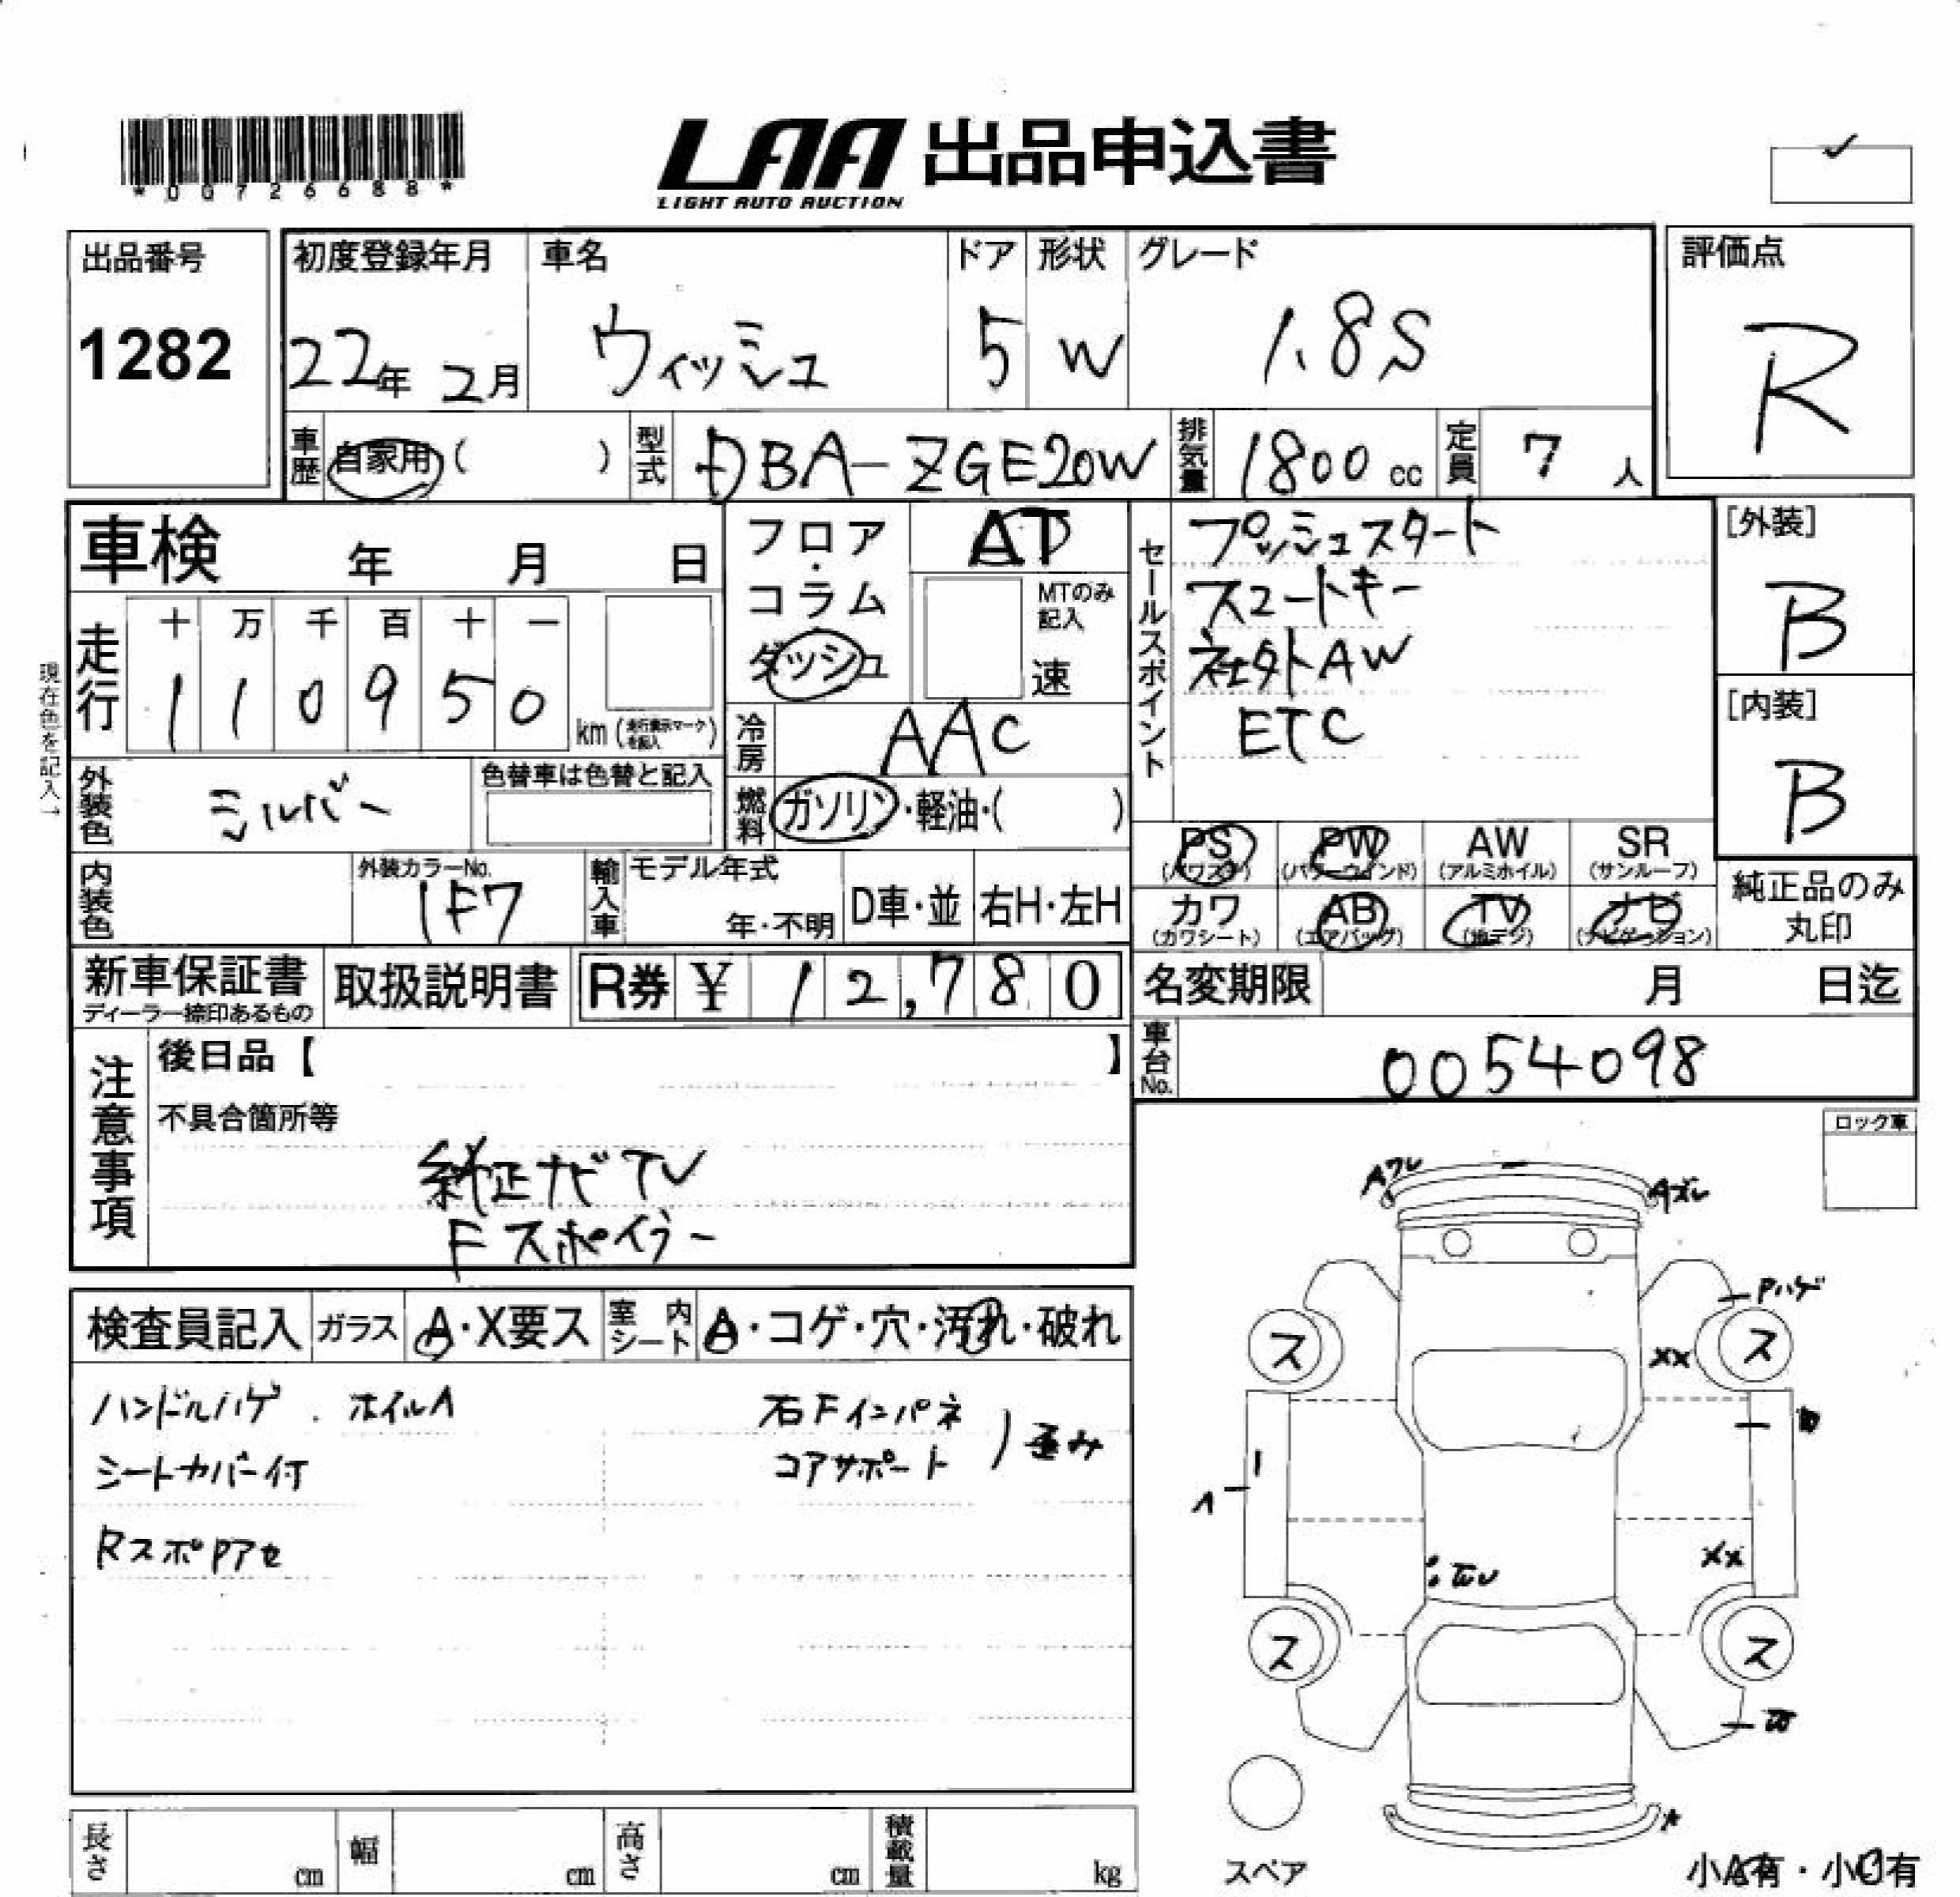 *00726688*
LAA 出品申込書
LIGHT AUTO AUCTION
出品番号
1282
初度登録年月
22年 2月
車名
ウィッシュ
ドア
5
形状
W
グレード
1.8S
評価点
R
車歴
自家用 ( )
型式
DBA-ZGE20W
排気量
1800 cc
定員
7 人
車検 年 月 日
フロア・コラム
ダッシュ
AT
MTのみ記入
速
セールスポイント
プッシュスタート
スマートキー
社外AW
ETC
[外装]
B
[内装]
B
現在色を記入→
走行
十 万 千 百 十 一
1 1 0 9 5 0
km (走行表示マークを記入)
冷房
AAC
外装色
シルバー
色替車は色替と記入
燃料
ガソリン・軽油・( )
PS (パワステ)
PW (パワーウインド)
AW (アルミホイル)
SR (サンルーフ)
カワ (カワシート)
AB (エアバッグ)
TV (地デジ)
ナビ (ナビゲーション)
純正品のみ丸印
内装色
外装カラーNo.
1F7
輸入車
モデル年式
年・不明
D車・並
右H・左H
新車保証書
ディーラー捺印あるもの
取扱説明書
R券 ¥ 12,780
名変期限 月 日迄
車台No.
0054098
注意事項
後日品【 】
不具合箇所等
純正ナビTV
Fスポイラー
ロック車
検査員記入
ガラス
A・X要ス
室内シート
A・コゲ・穴・汚れ・破れ
ハンドルハゲ . ホイルA
シートカバー付
RスポPアセ
右Fインパネ
コアサポート
) 歪み
Aズレ
Pハゲ
ス
ス
XX
XX
ス
ス
A
スペア
小A有・小C有
長さ cm
幅 cm
高さ cm
積載量 kg